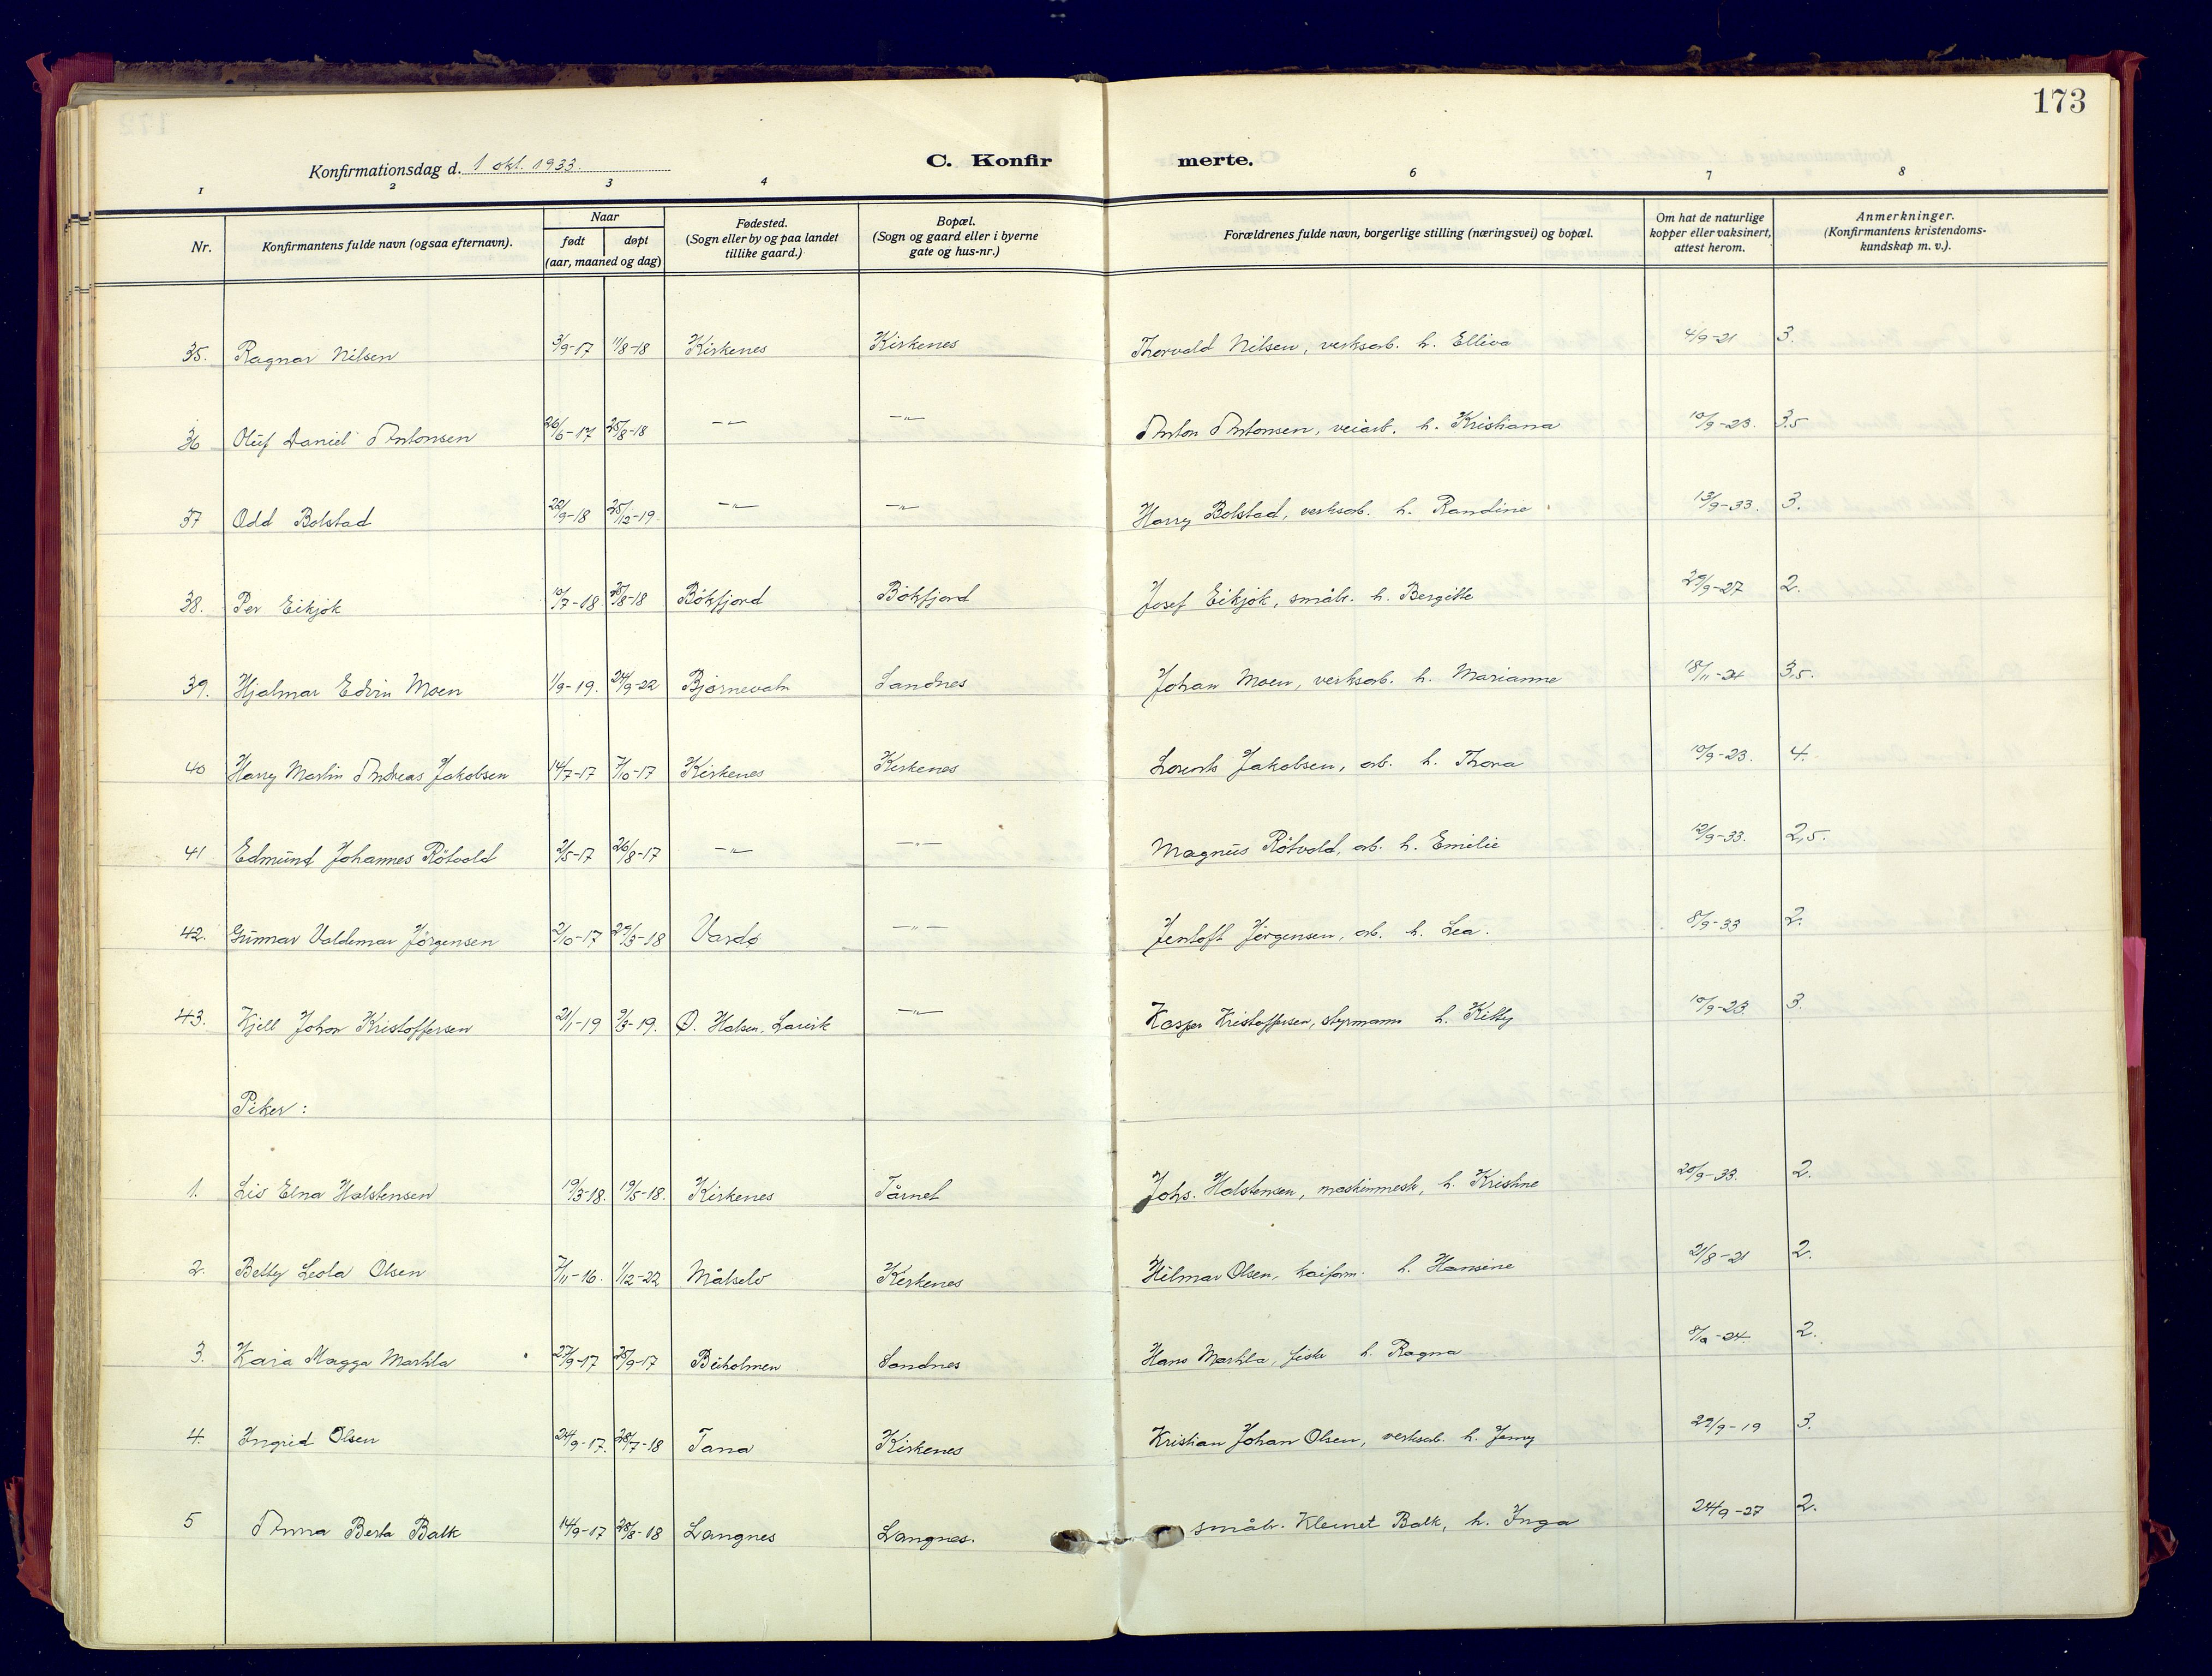 173
Konfirmationsdag d. 1 okt. 1933.
C. Konfirmerte.
1 2 3 4 6 7 8
Nr. Konfirmantens fulde navn (ogsaa efternavn). Naar født døpt (aar, maaned og dag) Fødested. (Sogn eller by og paa landet tillike gaard.) Bopæl. (Sogn og gaard eller i byerne gate og hus-nr.) Forældrenes fulde navn, borgerlige stilling (næringsvei) og bopæl. Om hat de naturlige kopper eller vaksinert, attest herom. Anmerkninger. (Konfirmantens kristendoms-kundskap m. v.).
35. Ragnar Nilsen 3/9-17 11/8-18 Kirkenes Kirkenes Thorvald Nilsen, verksarb. h. Elliva 4/9-21 3.
36 Oluf Daniel Antonsen 26/6-17 25/8-18 -"- -"- Anton Antonsen, veiarb. h. Kristiana 10/9-23. 3.5
37 Odd Bolstad 22/9-18 25/12-19. -"- -"- Harry Bolstad, verksarb. h. Randine 13/9-33. 3.
38. Per Eikjok 10/7-18 25/8-18 Bökfjord Bökfjord Josef Eikjok, småbr. h. Bergitte 29/9-27 2.
39. Hjalmar Edvin Moen 1/9-19. 24/9-22 Bjørnevatn Sandnes Johan Moen, verksarb. h. Marianne 18/11-24 3,5.
40 Harry Martin Andreas Jakobsen 14/7-17 7/10-17 Kirkenes Kirkenes Lorents Jakobsen, arb. h. Thora 10/9-23. 4.
41 Edmund Johannes Rötvold 2/5-17 26/8-17 -"- -"- Magnus Rötvold, arb. h. Emilie 12/9-33. 2,5.
42. Gunnar Valdemar Jörgensen 2/10-17 29/3-18 Vardö -"- Jentoft Jörgensen, arb. h. Lea. 8/9-33 2.
43. Kjell Johan Kristoffersen 21/1-19 9/3-19. Ö. Halsen. Larvik -"- Kasper Kristoffersen, styrmann h. Kitty 10/9-23. 3.
Piker:
1. Lis Elna Halstensen 19/3-18. 19/5-18. Kirkenes Tårnet Johs. Halstensen, maskinmest., h. Kristine 20/9-33. 2.
2. Betty Leola Olsen 7/11-16. 1/12-22 Målselv Kirkenes Hilmar Olsen, kaiform. h. Hansine 21/8-21 2.
3. Kaia Magga Markla 27/9-17 25/9-17 Buholmen Sandnes Hans Markla, fisker h. Ragna 8/9-24. 2.
4. Ingrid Olsen 24/9-17. 28/7-18 Tana Kirkenes Kristian Johan Olsen, verksarb. h. Jenny 29/9-19 3.
5 Anna Berta Balk 14/9-17 28/8-18 Langnes Langnes. småbr. Klemet Balk, h. Inga 24/9-27 2.